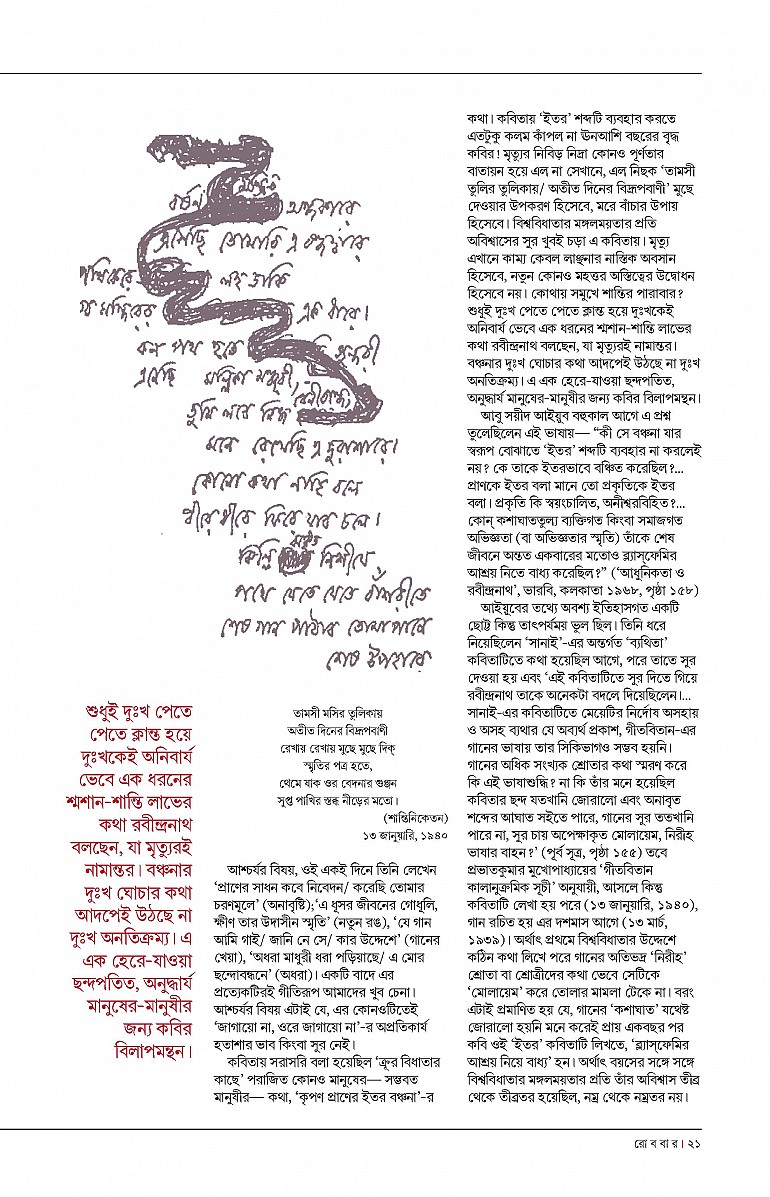 বর্ষণ
অন্ধকারে
এসেছি তোমারি এ
লহ ডাকি
এক ধারে।
পথ হতে
এনেছি মল্লিকা মঞ্জরী,
তুমি লবে নিজ
মনে রেখেছি এ দুরাশারে।
কোনো কথা নাহি বলে
ধীরে ধীরে ফিরে যাব চলে।
ঝিল্লি নিশীথে
পথে যেতে যেতে বাঁশরীতে
শেষ গান পাঠাব তোমা পানে
শেষ উপহারে
শুধুই দুঃখ পেতে
পেতে ক্লান্ত হয়ে
দুঃখকেই অনিবার্য
ভেবে এক ধরনের
শ্মশান-শান্তি লাভের
কথা রবীন্দ্রনাথ
বলছেন, যা মৃত্যুরই
নামান্তর। বঞ্চনার
দুঃখ ঘোচার কথা
আদপেই উঠছে না
দুঃখ অনতিক্রম্য। এ
এক হেরে-যাওয়া
ছন্দপতিত, অনুদ্ধার্য
মানুষের-মানুষীর
জন্য কবির
বিলাপমন্থন।
তামসী মসির তুলিকায়
অতীত দিনের বিদ্রূপবাণী
রেখায় রেখায় মুছে মুছে দিক্
স্মৃতির পত্র হতে,
থেমে যাক ওর বেদনার গুঞ্জন
সুপ্ত পাখির স্তব্ধ নীড়ের মতো।
(শান্তিনিকেতন)
১৩ জানুয়ারি, ১৯৪০
আশ্চর্যর বিষয়, ওই একই দিনে তিনি লেখেন
‘প্রাণের সাধন কবে নিবেদন/ করেছি তোমার
চরণমূলে’ (অনাবৃষ্টি);‘এ ধূসর জীবনের গোধূলি,
ক্ষীণ তার উদাসীন স্মৃতি’ (নতুন রঙ), ‘যে গান
আমি গাই/ জানি নে সে/ কার উদ্দেশে’ (গানের
খেয়া), ‘অধরা মাধুরী ধরা পড়িয়াছে/ এ মোর
ছন্দোবন্ধনে’ (অধরা)। একটি বাদে এর
প্রত্যেকটিরই গীতিরূপ আমাদের খুব চেনা।
আশ্চর্যর বিষয় এটাই যে, এর কোনওটিতেই
‘জাগায়ো না, ওরে জাগায়ো না’-র অপ্রতিকার্য
হতাশার ভাব কিংবা সুর নেই।
কবিতায় সরাসরি বলা হয়েছিল ‘ক্রূর বিধাতার
কাছে’ পরাজিত কোনও মানুষের— সম্ভবত
মানুষীর— কথা, ‘কৃপণ প্রাণের ইতর বঞ্চনা’-র
কথা। কবিতায় ‘ইতর’ শব্দটি ব্যবহার করতে
এতটুকু কলম কাঁপল না ঊনআশি বছরের বৃদ্ধ
কবির! মৃত্যুর নিবিড় নিদ্রা কোনও পূর্ণতার
বাতায়ন হয়ে এল না সেখানে, এল নিছক ‘তামসী
তুলির তুলিকায়/ অতীত দিনের বিদ্রূপবাণী’ মুছে
দেওয়ার উপকরণ হিসেবে, মরে বাঁচার উপায়
হিসেবে। বিশ্ববিধাতার মঙ্গলময়তার প্রতি
অবিশ্বাসের সুর খুবই চড়া এ কবিতায়। মৃত্যু
এখানে কাম্য কেবল লাঞ্ছনার নাস্তিক অবসান
হিসেবে, নতুন কোনও মহত্তর অস্তিত্বের উদ্বোধন
হিসেবে নয়। কোথায় সমুখে শান্তির পারাবার?
শুধুই দুঃখ পেতে পেতে ক্লান্ত হয়ে দুঃখকেই
অনিবার্য ভেবে এক ধরনের শ্মশান-শান্তি লাভের
কথা রবীন্দ্রনাথ বলছেন, যা মৃত্যুরই নামান্তর।
বঞ্চনার দুঃখ ঘোচার কথা আদপেই উঠছে না দুঃখ
অনতিক্রম্য। এ এক হেরে-যাওয়া ছন্দপতিত,
অনুদ্ধার্য মানুষের-মানুষীর জন্য কবির বিলাপমন্থন।
আবু সয়ীদ আইয়ুব বহুকাল আগে এ প্রশ্ন
তুলেছিলেন এই ভাষায়— “কী সে বঞ্চনা যার
স্বরূপ বোঝাতে ‘ইতর’ শব্দটি ব্যবহার না করলেই
নয়? কে তাকে ইতরভাবে বঞ্চিত করেছিল?...
প্রাণকে ইতর বলা মানে তো প্রকৃতিকে ইতর
বলা। প্রকৃতি কি স্বয়ংচালিত, অনীশ্বরবিহিত?...
কোন্ কশাঘাততুল্য ব্যক্তিগত কিংবা সমাজগত
অভিজ্ঞতা (বা অভিজ্ঞতার স্মৃতি) তাঁকে শেষ
জীবনে অন্তত একবারের মতোও ব্ল্যাস্‌ফেমির
আশ্রয় নিতে বাধ্য করেছিল?” (‘আধুনিকতা ও
রবীন্দ্রনাথ’, ভারবি, কলকাতা ১৯৬৮, পৃষ্ঠা ১৫৮)
আইয়ুবের তথ্যে অবশ্য ইতিহাসগত একটি
ছোট্ট কিন্তু তাৎপর্যময় ভুল ছিল। তিনি ধরে
নিয়েছিলেন ‘সানাই’-এর অন্তর্গত ‘ব্যথিতা’
কবিতাটিতে কথা হয়েছিল আগে, পরে তাতে সুর
দেওয়া হয় এবং ‘এই কবিতাটিতে সুর দিতে গিয়ে
রবীন্দ্রনাথ তাকে অনেকটা বদলে দিয়েছিলেন।...
সানাই-এর কবিতাটিতে মেয়েটির নির্দোষ অসহায়
ও অসহ ব্যথার যে অব্যর্থ প্রকাশ, গীতবিতান-এর
গানের ভাষায় তার সিকিভাগও সম্ভব হয়নি।
গানের অধিক সংখ্যক শ্রোতার কথা স্মরণ করে
কি এই ভাষাশুদ্ধি? না কি তাঁর মনে হয়েছিল
কবিতার ছন্দ যতখানি জোরালো এবং অনাবৃত
শব্দের আঘাত সইতে পারে, গানের সুর ততখানি
পারে না, সুর চায় অপেক্ষাকৃত মোলায়েম, নিরীহ
ভাষার বাহন?’ (পূর্ব সূত্র, পৃষ্ঠা ১৫৫) তবে
প্রভাতকুমার মুখোপাধ্যায়ের ‘গীতবিতান
কালানুক্রমিক সূচী’ অনুযায়ী, আসলে কিন্তু
কবিতাটি লেখা হয় পরে (১৩ জানুয়ারি, ১৯৪০),
গান রচিত হয় এর দশমাস আগে (১৩ মার্চ,
১৯৩৯)। অর্থাৎ প্রথমে বিশ্ববিধাতার উদ্দেশে
কঠিন কথা লিখে পরে গানের অতিভদ্র ‘নিরীহ’
শ্রোতা বা শ্রোত্রীদের কথা ভেবে সেটিকে
‘মোলায়েম’ করে তোলার মামলা টেকে না। বরং
এটাই প্রমাণিত হয় যে, গানের ‘কশাঘাত’ যথেষ্ট
জোরালো হয়নি মনে করেই প্রায় একবছর পর
কবি ওই ‘ইতর’ কবিতাটি লিখতে, ‘ব্ল্যাস্‌ফেমির
আশ্রয় নিয়ে বাধ্য’ হন। অর্থাৎ বয়সের সঙ্গে সঙ্গে
বিশ্ববিধাতার মঙ্গলময়তার প্রতি তাঁর অবিশ্বাস তীব্র
থেকে তীব্রতর হয়েছিল, নম্র থেকে নম্রতর নয়।
রো ব বা র। ২১